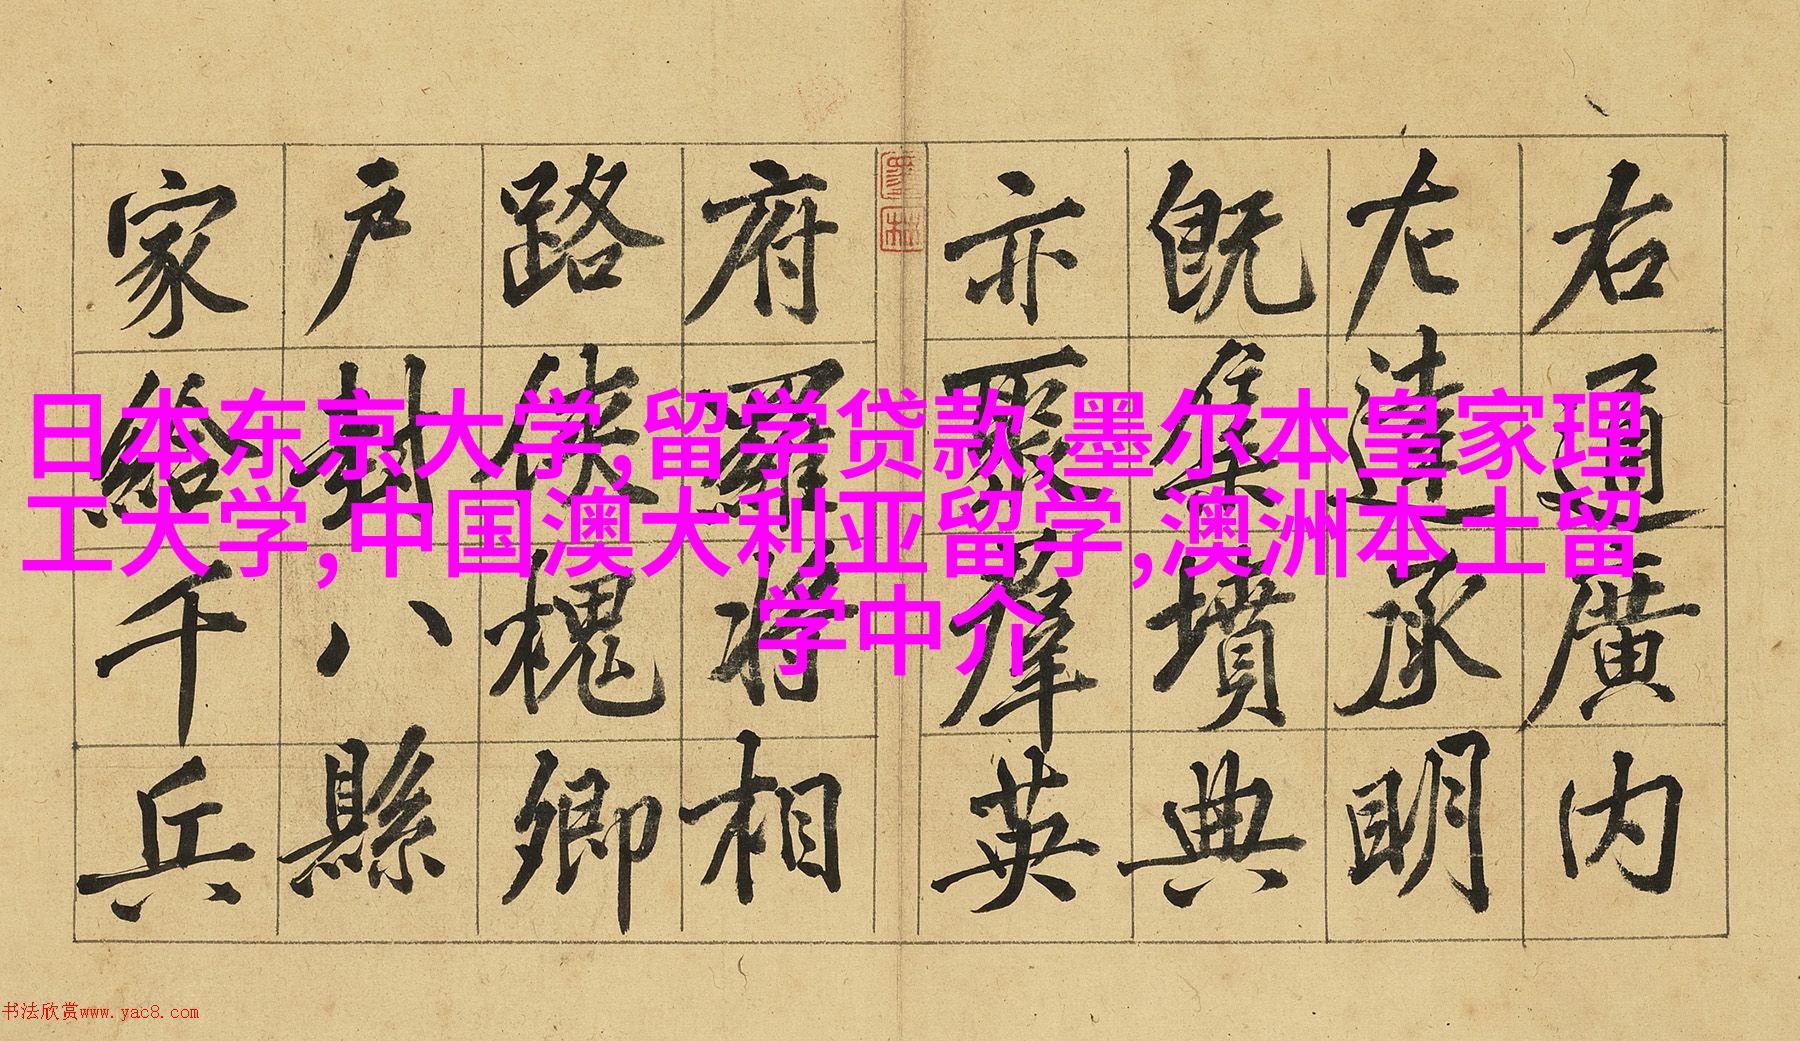 日本东京大学,留学贷款,墨尔本皇家理
工大学,中国澳大利亚留学,澳洲本土留
学中介
右通廣内
左達承明
既集墳典
亦聚羣英
墨林
府羅将相
路俠槐卿
戶封八縣
家給千兵
书法欣赏www.yac8.com